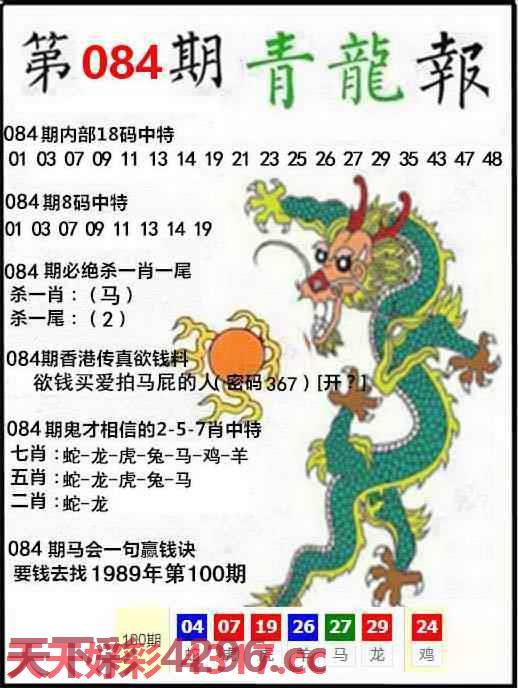 第084期青龍報
084期内部18码中特
01 03 07 09 11 13 14 19 21 23 25 26 27 29 35 43 47 48
084期8码中特
01 03 07 09 11 13 14 19
084期必绝杀一肖一尾
杀一肖：（马）
杀一尾：（2）
084期香港传真欲钱料
欲钱买爱拍马屁的人(密码367)[开？]
084期鬼才相信的2-5-7肖中特
七肖：蛇-龙-虎-兔-马-鸡-羊
五肖：蛇-龙-虎-兔-马
二肖：蛇-龙
084期马会一句赢钱诀
要钱去找1989年第100期
100期 04 07 19 26 27 29 24
虎 羊 马 龙 鸡
天天好彩4296.cc